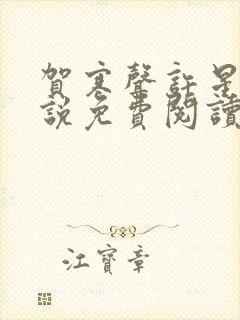 賀寒聲許星
說免費閱讀
江寶章